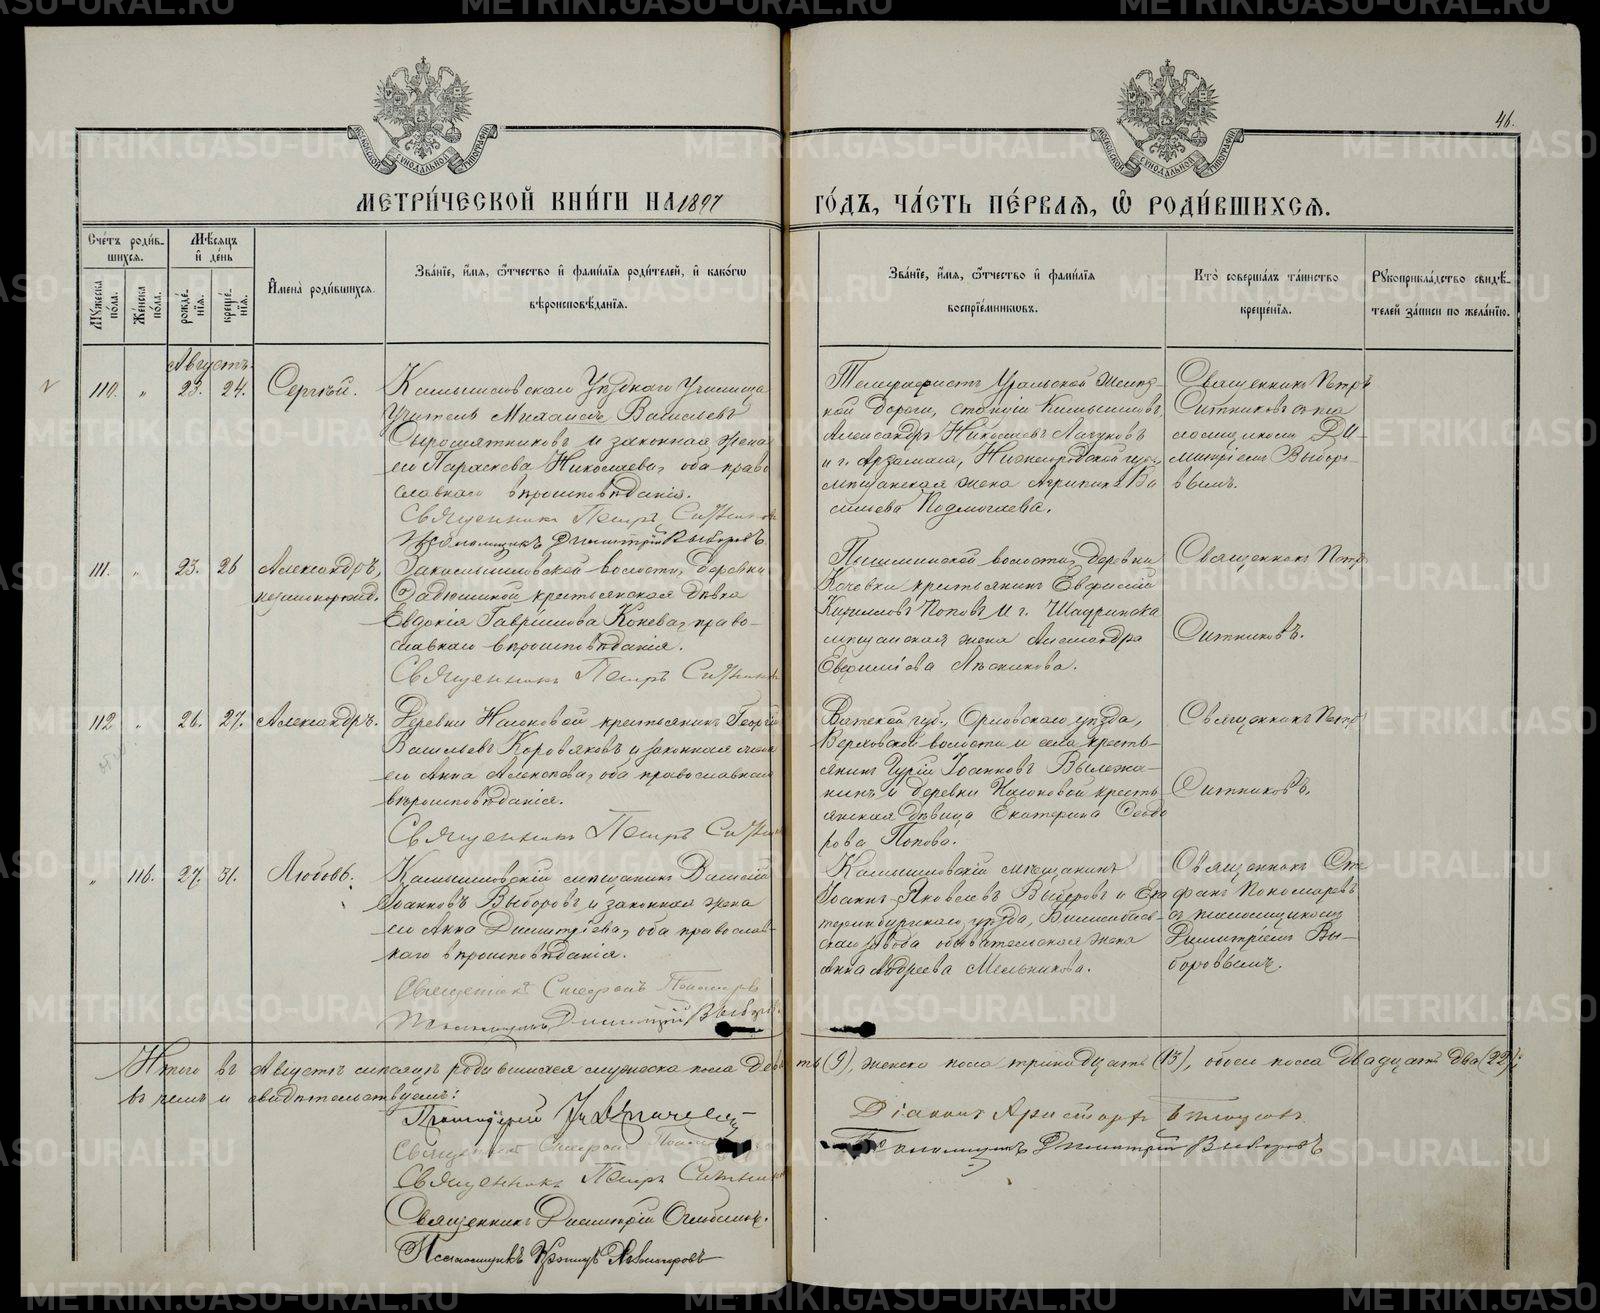 46.
МЕТРИ́ЧЕСКОЙ КНИ́ГИ НА 1897 ГО́ДЪ, ЧА́СТЬ ПЕ́РВАѦ, Ѡ РОДИ́ВШИХСѦ.
Сче́тъ роди́в-
шихсѧ.
Мꙋжеска по́ла.
Же́нска по́ла.
Мѣ́сѧцъ
и де́нь
рожде́нїѧ.
креще́нїѧ.
Имена̀ роди́вшихсѧ.
Зва́нїе, и́мѧ, ѻ́тчество и фами́лїѧ роди́телей, и како́гѡ
вѣроисповѣ́данїѧ.
Зва́нїе, и́мѧ, ѻ́тчество и фами́лїѧ
воспрїе́мникѡвъ.
Кто̀ соверша́лъ та́инство
креще́нїѧ.
Рꙋкоприкла́дство свидѣ́-
телей за́писи по жела́нїю.
Августъ
110. " 23. 24. Сергѣй.
Камышловскаго Уѣзднаго Училища
Учитель Михаилъ Васильевъ
Сыромятниковъ и законная жена
его Параскева Николаева, оба право
славнаго вѣроисповѣданія.
Священникъ Петръ Ситников
Псаломщикъ Димитрій Выборовъ
Телеграфистъ Уральской желѣз-
ной дороги, станціи Камышловъ,
Александръ Николаевъ Лагуновъ
и г. Арзамаса, Нижегородской губ.,
мѣщанская жена Агрипина Ва
сильева Подмогаева.
Священникъ Петръ
Ситниковъ съ пса
ломщикомъ Ди-
митріемъ Выборо-
вымъ.
111. " 23. 26 Александръ,
незаконорожд.
Закамышловской волости, деревни
крестьянская дѣвка
Евдокія Гавріилова Конева, право-
славнаго вѣроисповѣданія.
Священникъ Петръ Ситников
Пышминской волости, деревни
Кочевки крестьянинъ Евфимій
Кирилловъ Поповъ и г. Шадринска
мѣщанская жена Александра
Евфиміева Лѣсникова.
Священникъ Петръ
Ситниковъ.
112 " 26. 27. Александръ.
Деревни Насоновой крестьянинъ Георгій
Васильевъ Коровяковъ и законная жена
его Анна Алексѣева, оба православнаго
вѣроисповѣданія.
Священникъ Петръ Ситник
Вятской губ., Орловскаго уѣзда,
Верховской волости и села кресть-
янинъ Гурій Іоанновъ Вылежа-
нинъ и деревни Насоновой кресть
янская дѣвица Екатерина Ѳеодо
рова Попова.
Священникъ Петръ
Ситниковъ.
" 116. 27. 31. Любовь.
Камышловскій мѣщанинъ Василій
Іоанновъ Выборовъ и законная жена
его Анна Димитріева, оба православ-
наго вѣроисповѣданія.
Священникъ Стефанъ Пономарев
Псаломщикъ Димитрій Выборов
Камышловскій мѣщанинъ
Іоаннъ Яковлевъ Выборовъ и Ека
теринбургскаго уѣзда, Билимбаев-
скаго завода обывательская жена
Анна Андреева Мельникова.
Священникъ Сте
фанъ Пономаревъ
съ псаломщикомъ
Димитріемъ Вы-
боровымъ.
Итого въ Августѣ мѣсяцѣ родившихся мужеска пола девять (9), женска пола тринадцать (13), обоего пола двадцать два (22);
въ чемъ и свидѣтельствуемъ:
Протоіерей
Священникъ Стефанъ Поном
Священникъ Петръ Ситников
Священникъ Димитрій
Псаломщикъ
Діаконъ Аристархъ
Псаломщикъ Димитрій Выборовъ